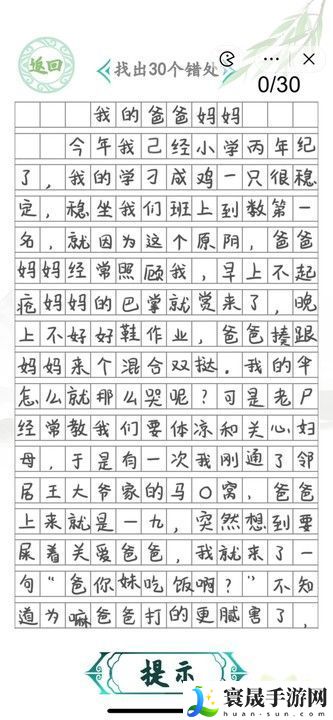 返回
找出30个错处
0/30
我的爸爸妈妈
今年我己经小学丙年纪
了，我的学刁成鸡一只很稳
定，稳坐我们班上到数第一
名，就因为这个原阴，爸爸
妈妈经常照顾我，早上不起
疤妈妈的巴掌就觉来了，晚
上不好好鞋作业，爸爸揍跟
妈妈来个混合双挞。我的伞
怎么就那么哭呢？可是老尸
经常教我们要体凉和关心妇
母，于是有一次我刚通了邻
居王大爷家的马〇窝，爸爸
上来就是一九，突然想到要
尿着关爱爸爸，我就来了一
句“爸你妹吃饭啊？”不知
道为嘛爸爸打的更腻害了，
提示
寰晟手游网
huan-sun.com